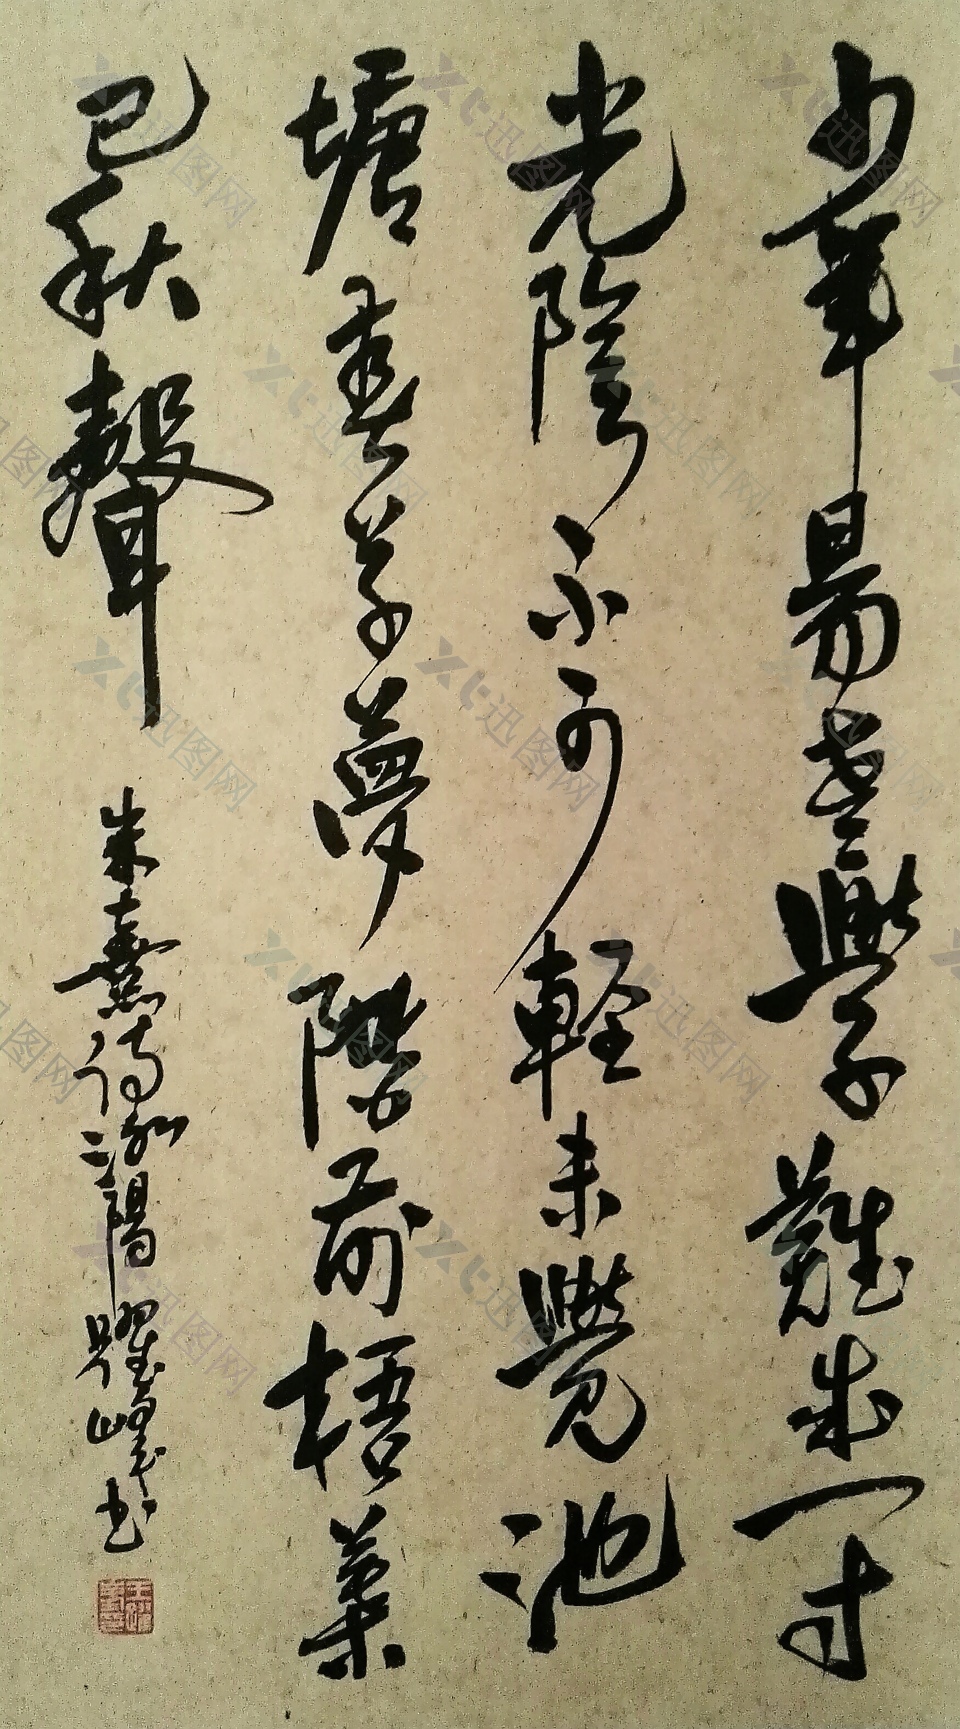 少年易老學難成一寸
光陰不可輕未覺池
塘春草夢階前梧葉
已秋聲
朱熹詩泌陽躍峰書
迅图网